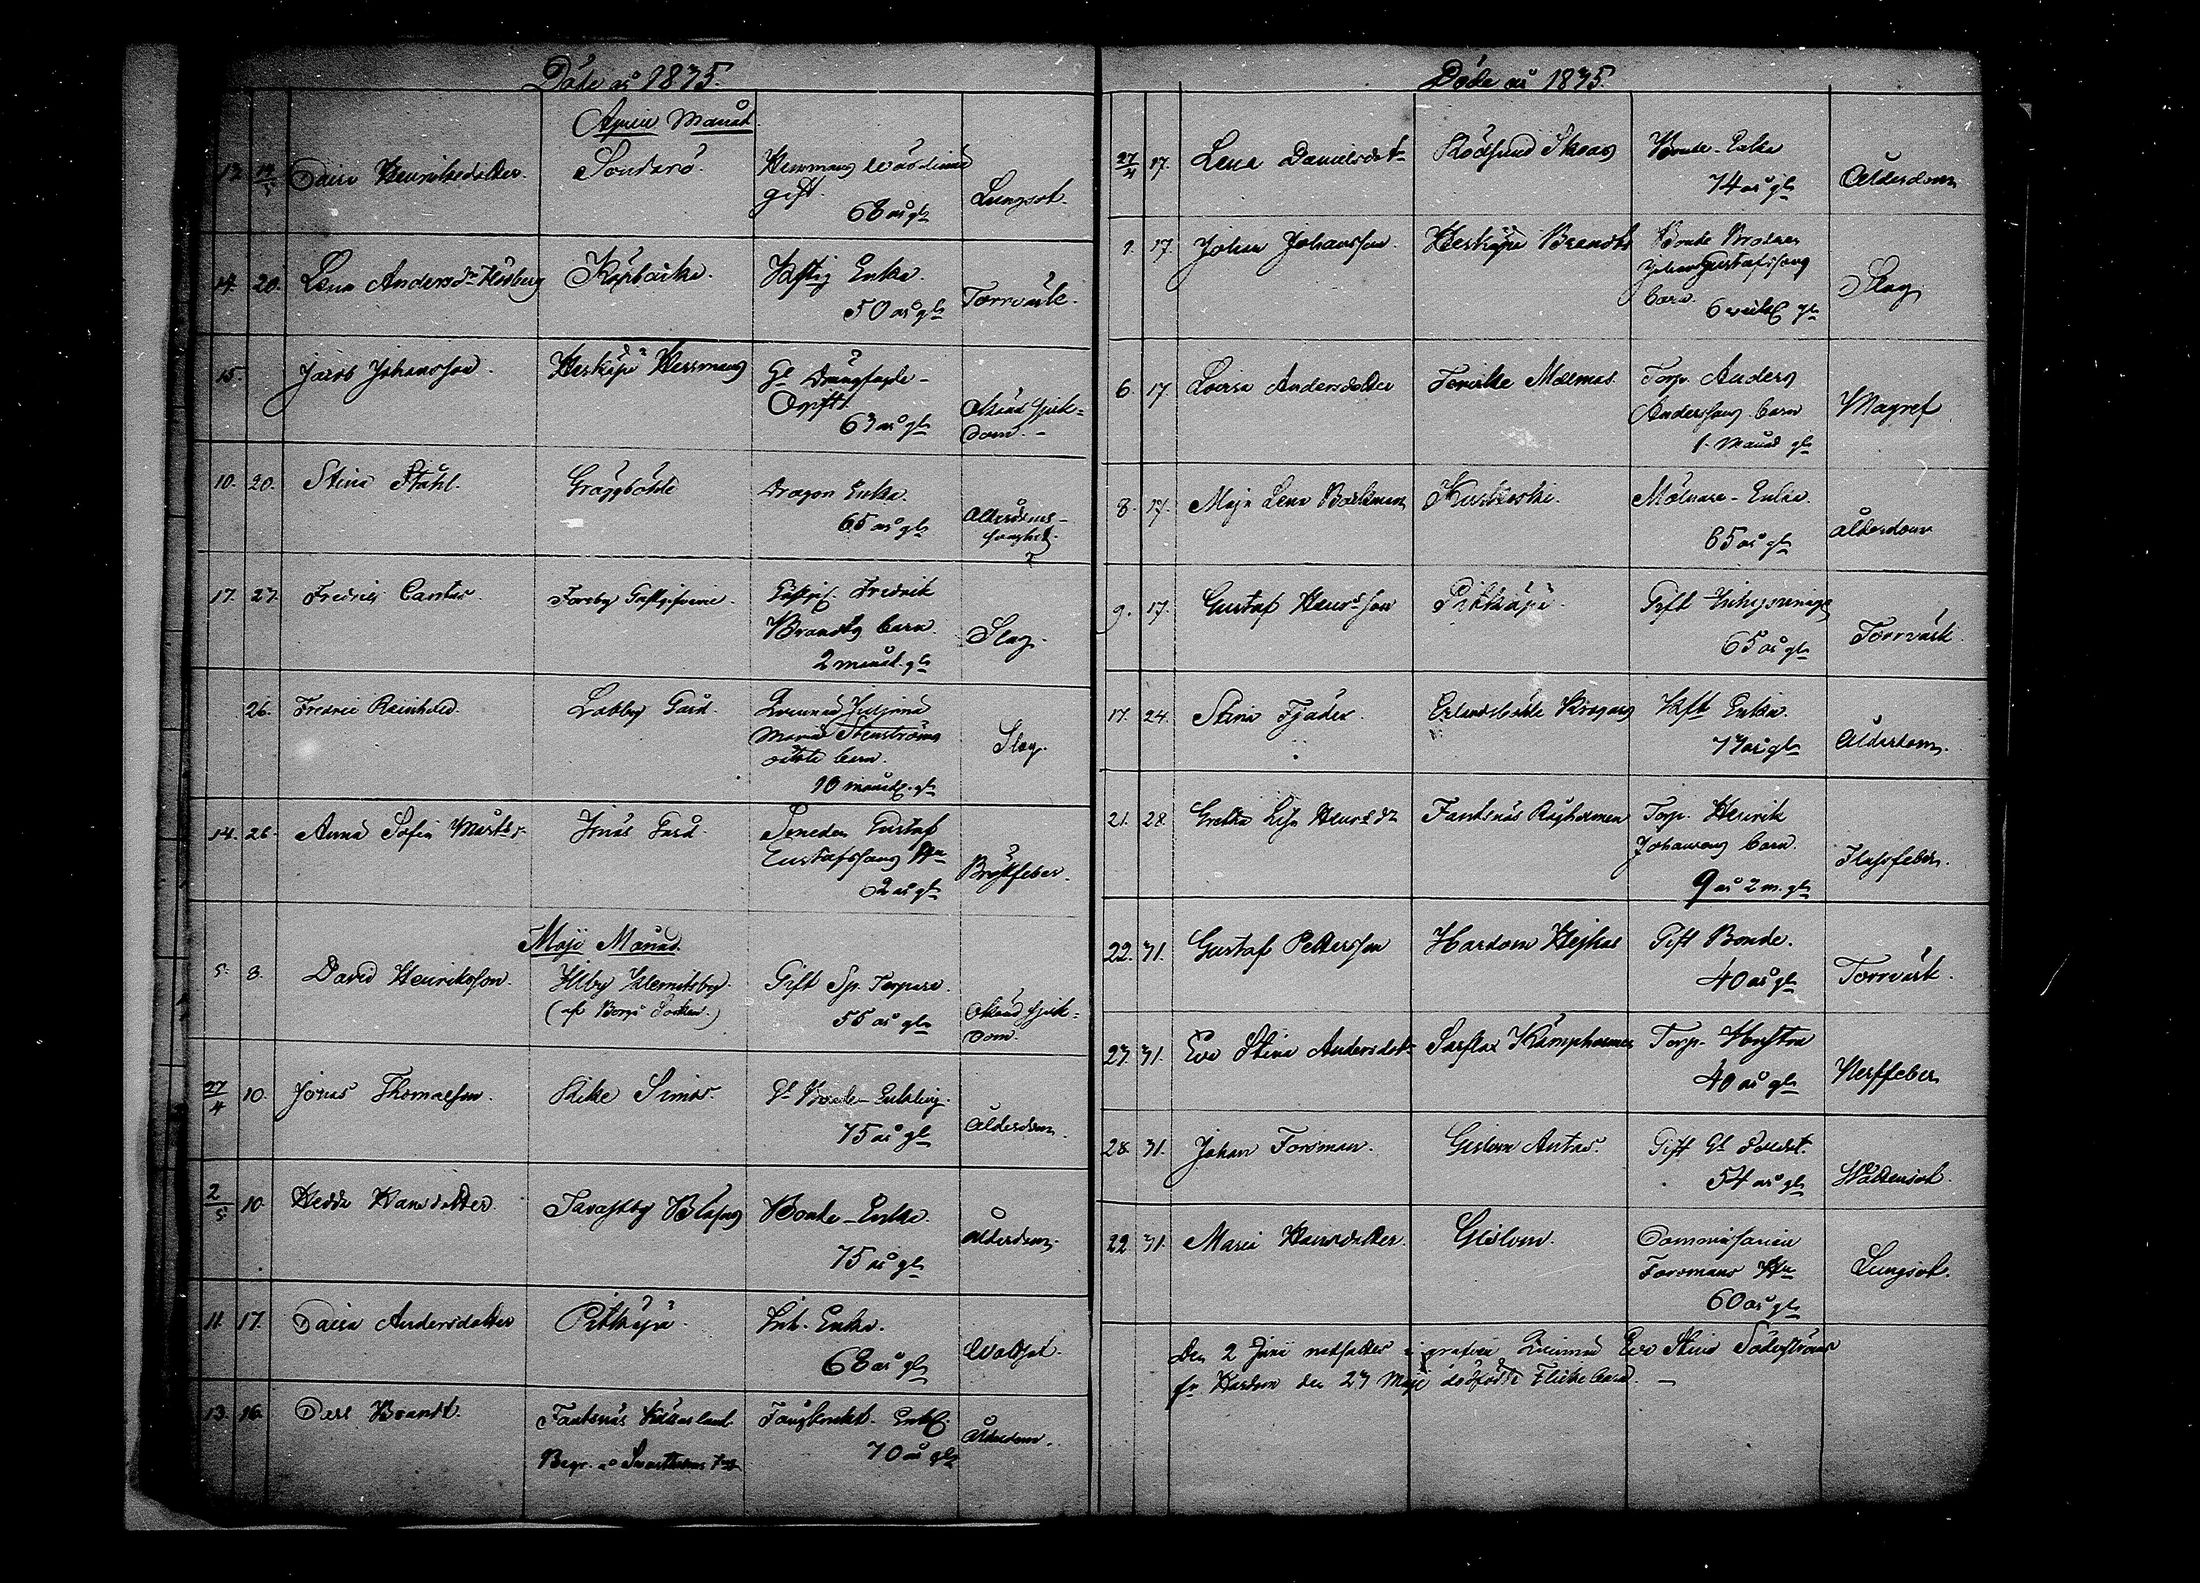 Döde år 1835.
April Månad.
13. 19/5 Caisa Henriksdotter. Sondarö. Herrmans Wärdinna
gift.
68 år gl. Lungsot.
14. 20. Lena Andersdr Kosberg Köpbacka. Enka.
50 år gl. Torrvärk.
15. Jacob Johansson. Heskäpä Herrmans Gl. Drängfogde
Ogift
63 år gl. Okänd sjuk-
dom.
10. 20. Stina Ståhl. Gräggböhle Dragon Enka.
65 år gl. Ålderdoms-
svaghet.
17. 27. Fredric Forsby Gästgifveri. Gästgif. Fredrik
Brandts barn.
2 månad. gl. Slag.
26. Fredric Reinhold. Labby Gård. Qvinnan
Maria Stenströms
oäkta barn.
10 månad. gl. Slag.
14. 26. Anna Sofia Gård. Smeden Gustaf
Gustafssons
2 år gl. Bröstfeber.
Maji Månad
5. 8. David Henriksson. Illby Klemetsby.
(af Borgå Socken.) Gift Sp. Torpare.
55 år gl. Okänd sjuk-
dom.
27/4 10. Jonas Thomasson. Rike Simos. Gl. Bonde Enkling.
75 år gl. Ålderdom.
2/5 10. Hedda Hansdotter. Tavastby Blasas Bonde-Enka.
75 år gl. Ålderdom.
11. 17. Caisa Andersdotter Pitkäpä. Inh. Enka.
68 år gl. Wattsot.
13. 16. Brandt. Fantsnäs
Begr. Enkl.
70 år gl. Ålderdom.
Döde år 1835.
27/4 17. Lena Danielsdotr Rödsund Skoas Bonde-Enka
74 år gl. Ålderdom
1. 17. Johan Johansson. Heskäpä Brandts Bonde Brodren
Johan Gustafssons
barn.
6 veck. gl. Slag
6. 17. Lovisa Andersdotter Tervike Malmas. Torp. Anders
Anderssons barn
1. Månad gl. Magref
8. 17. Maja Lena Backman Kuskoski. Mölnare-Enka
65 år gl. ålderdom
9. 17. Gustaf Henrsson Pitkäpä. Gift Inhysning
65 år gl. Torrvärk.
17. 24. Stina Fjäder Erlandsböhle Krogars Enka.
77 år gl. Ålderdom.
21. 28. Greta Lisa Henrsdr Fantsnäs Rågholmen Torp. Henrik
Johanssons barn.
9 år 2 m. gl. feber.
22. 31. Gustaf Pettersson Hardom Hejkas Gift Bonde.
40 år gl. Torrvärk.
27. 31. Eva Stina Andersdotr Sarflax Kämpholmen Torp. Hustru
40 år gl. Nerffeber
28. 31. Johan Forsman. Gislom Antas. Gift Gl. Soldat.
54 år gl. Wattensot.
22. 31. Maria Hansdotter. Gislom. Commissarien
Forsmans Hu
60 år gl. Lungsot.
Den 2 Juni nedsattes i grafven Qvinnan Eva Stina Söderströms
fr. Hardom den 27 Maji dödfödda Flickebarn.